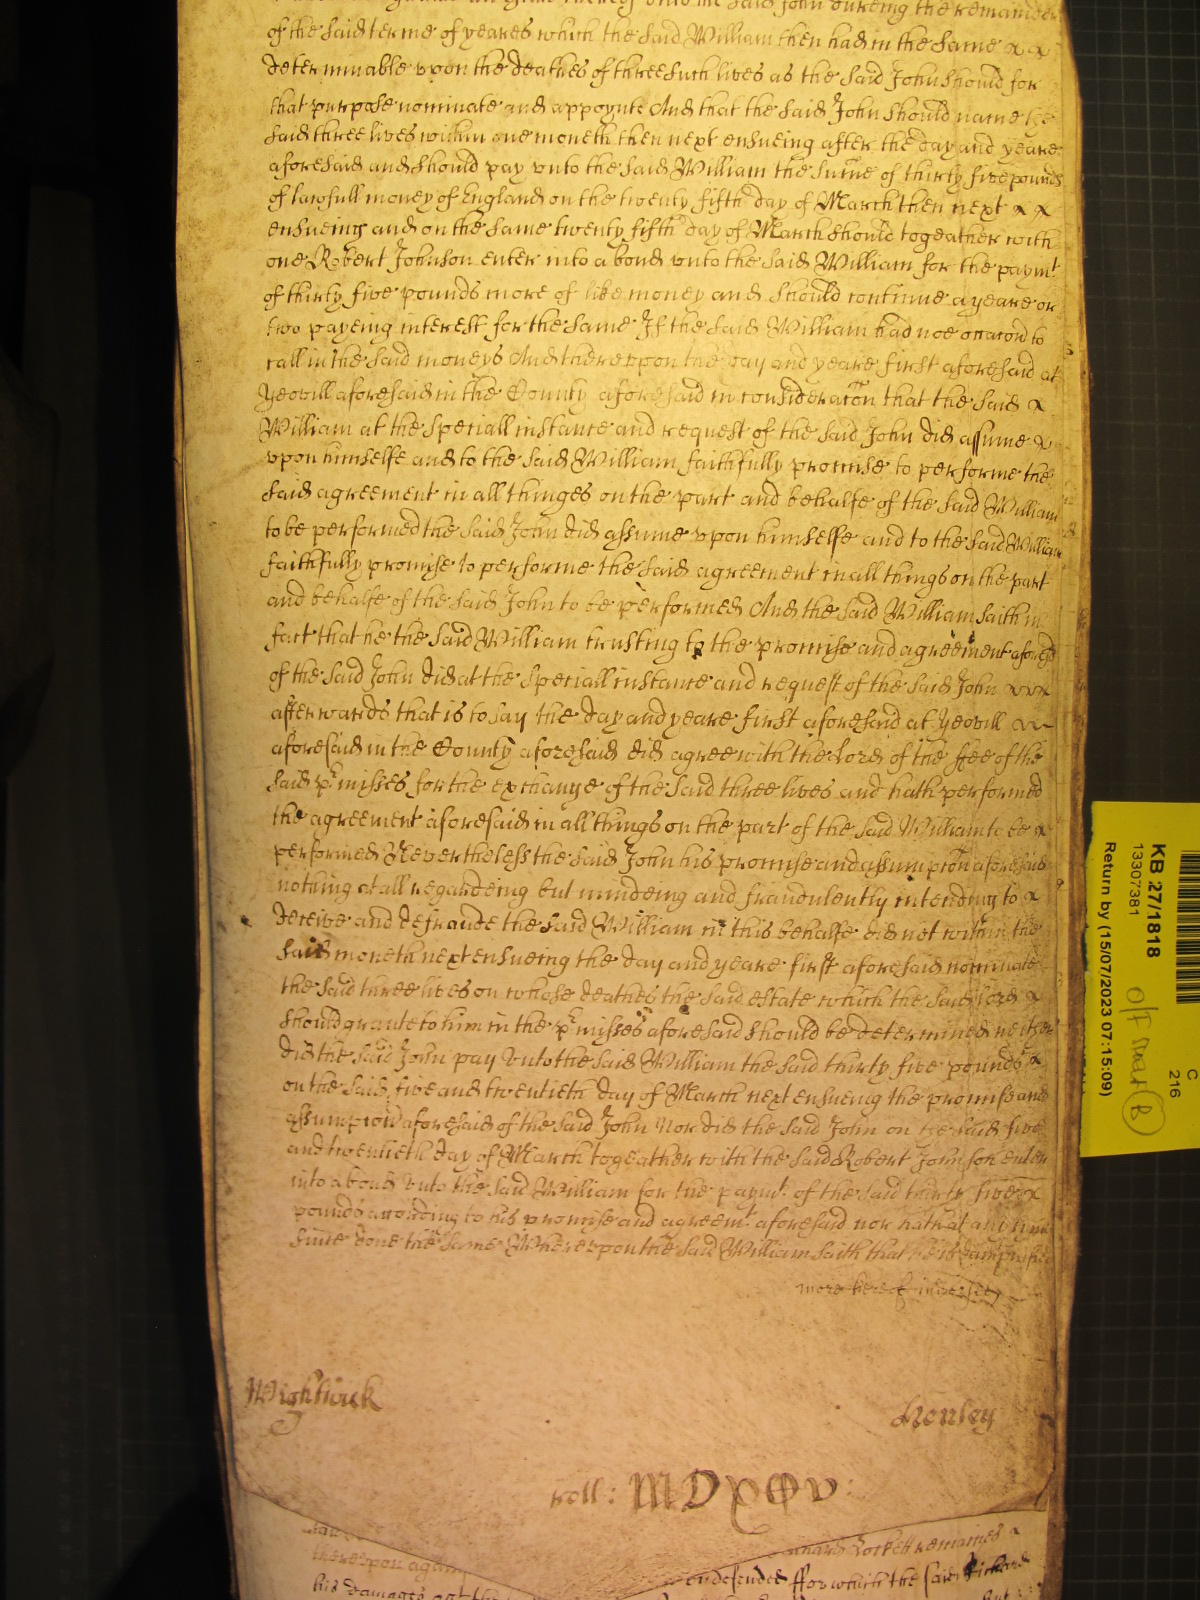 unto the said John dureing the remainder
of the said terme of yeares which the said William then had in the same x x
determinable upon the deathes of three such lives as the said John should for
that purpose nominate and appoynte And that the said John should name the
said three lives within one moneth then next ensueing after the day and yeare
aforesaid and should pay unto the said William the sume of thirty five pounds
of lawfull money of England on the twenty fifth day of March then next x x
ensueing and on the same twenty fifth day of March should togeather with
one Robert Johnson enter into a bond unto the said William for the paymt
of thirty five pounds more of like money and should continue a yeare or
two payeing interest for the same If the said William had noe occacon to
call in the said moneys And thereupon the day and yeare first aforesaid at
Yeovill aforesaid in the County aforesaid in consideracon that the said x
William at the speciall instance and request of the said John did assume x
upon himselfe and to the said William faithfully promise to performe the
said agreement in all thinges on the part and behalfe of the said William
to be performed the said John did assume upon himselfe and to the said William
faithfully promise to performe the said agreement in all things on the part
and behalfe of the said John to be performed And the said William saith in
fact that he the said William trusting to the promise and agreement aforesd
of the said John did at the speciall instance and request of the said John xxx
afterwards that is to say the day and yeare first aforesaid at Yeovill x
aforesaid in the County aforesaid did agree with the Lord of the ffee of the
said pr misses for the exchange of the said three lives and hath performed
the agreement aforesaid in all things on the part of the said William to be x
performed Nevertheless the said John his promise and assumpcon aforesaid
nothing at all regardeing but mindeing and fraudulently intending to x
deceive and defraude the said William in this behalfe did not within the
said moneth next ensueing the day and yeare first aforesaid nominate
the said three lives on whose deathes the said estate which the said lord x
should graunte to him in the pr misses aforesaid should be determined neither
did the said John pay unto the said William the said thirty five pounds x
on the said five and twentieth day of March next ensueing the promise and
assumpcon aforesaid of the said John Nor did the said John on the said five
and twentieth day of March togeather with the said Robert Johnson enter
into a bond unto the said William for the paymt of the said thirty five x
pounds according to his promise and agreemt aforesaid nor hath at any time
since done the same Whereupon the said William saith that he is
more hereof in
Wightwick
Henley
roll: MDXXV:
Lockett remaines x
thereupon again
ffor which the said Richard
his damages
KB 27/1818
13307381
Return by (15/07/2023 07:15:09)
C
216
B